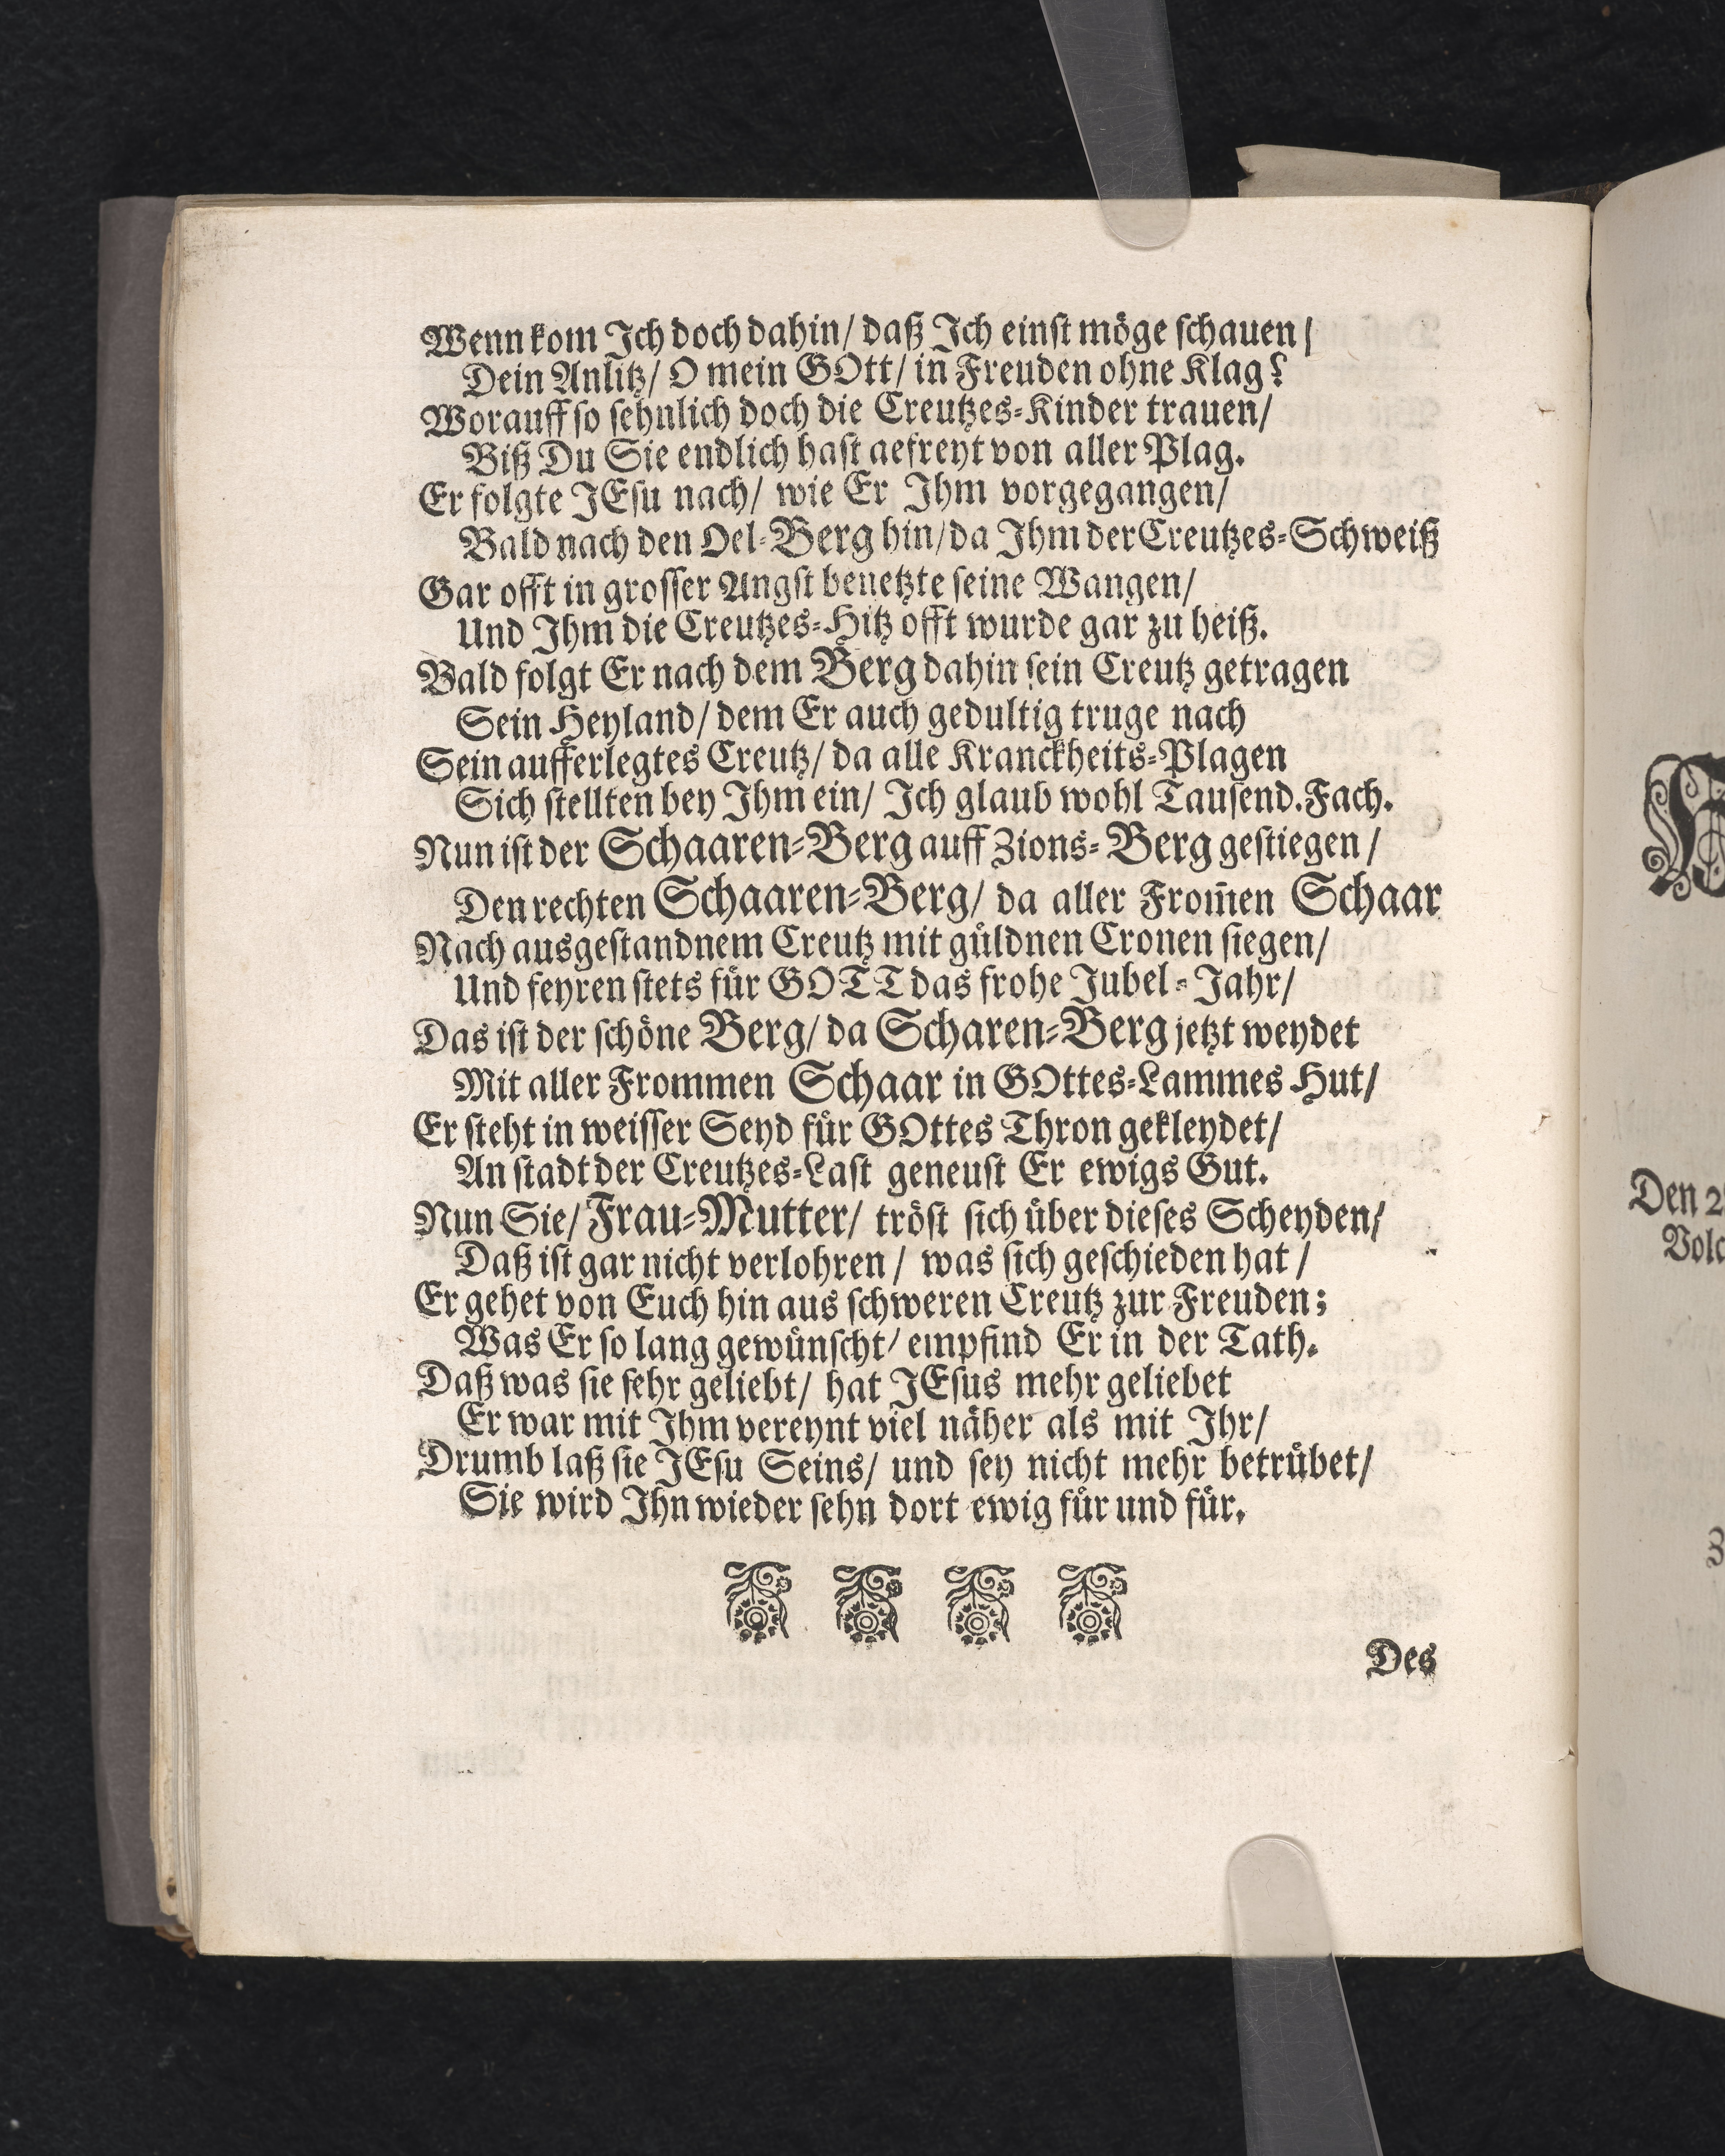 Wenn kom Ich doch dahin/ daß Ich einst möge schauen/
Dein Anlitz/ O mein GOtt/ in Freuden ohne Klag?
Worauff so sehnlich doch die Creutzes-Kinder trauen/
Biß Du Sie endlich hast gefreyt von aller Plag.
Er folgte JEsu nach/ wie Er Ihm vorgegangen/
Bald nach den Oel-Berg hin/ da Ihm der Creutzes-Schweiß
Gar offt in grosser Angst benetzte seine Wangen/
Und Ihm die Creutzes-Hitz offt wurde gar zu heiß.
Bald folgt Er nach dem Berg dahin sein Creutz getragen
Sein Heyland/ dem Er auch gedultig truge nach
Sein aufferlegtes Creutz/ da alle Kranckheits-Plagen
Sich stellten bey Ihm ein/ Ich glaub wohl Tausend.Fach.
Nun ist der Schaaren-Berg auff Zions-Berg gestiegen/
Den rechten Schaaren-Berg/ da aller From̄en Schaar
Nach ausgestandnem Creutz mit güldnen Cronen siegen/
Und feyren stets für GOTT das frohe Jubel-Jahr/
Das ist der schöne Berg/ da Scharen-Berg jetzt weydet
Mit aller Frommen Schaar in GOttes-Lammes Hut/
Er steht in weisser Seyd für GOttes Thron gekleydet/
An stadt der Creutzes-Last geneust Er ewigs Gut.
Nun Sie/ Frau-Mutter/ tröst sich über dieses Scheyden/
Daß ist gar nicht verlohren/ was sich geschieden hat/
Er gehet von Euch hin aus schweren Creutz zur Freuden;
Was Er so lang gewünscht/ empfind Er in der Tath.
Daß was sie sehr geliebt/ hat JEsus mehr geliebet
Er war mit Ihm vereynt viel näher als mit Ihr/
Drumb laß sie JEsu Seins/ und sey nicht mehr betrübet/
Sie wird Ihn wieder sehn dort ewig für und für.
Des
Den 2